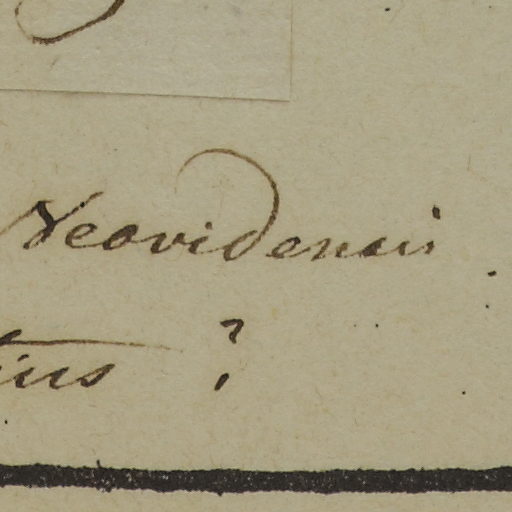 Neovidensis
ius ?